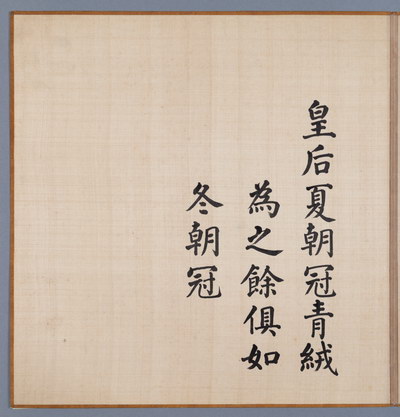 皇后夏朝冠青絨
為之餘俱如
冬朝冠